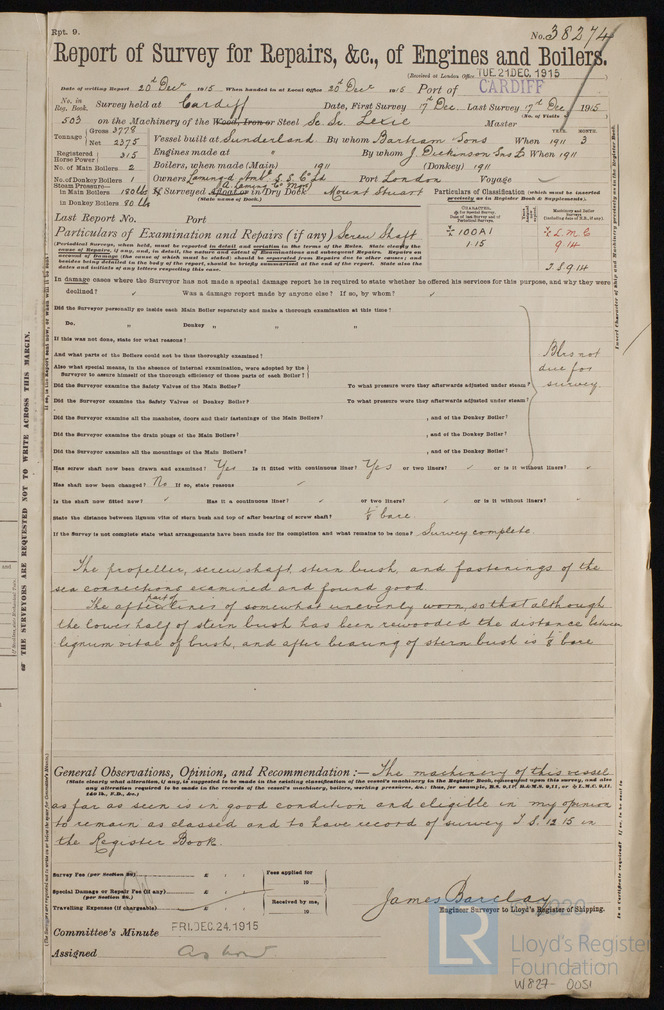 Rpt. 9.
No. 38274
Report of Survey for Repairs, &c., of Engines and Boilers.
(Received at London Office TUE. 21 DEC. 1915
Date of writing Report 20th Decr 1915 When handed in at Local Office 20th Decr 1915 Port of CARDIFF
No. in Reg. Book. Survey held at Cardiff Date, First Survey 17th Dec Last Survey 17th Dec 1915
(No. of Visits
503 on the Machinery of the Wood, Iron or Steel Sc. Sr. Lexie Master
Tonnage Gross 3778 Vessel built at Sunderland By whom Bartram & Sons When 1911 3
YEAR. MONTH.
Net 2375 Engines made at " By whom J. Dickinson & Sons Ld When 1911
Registered Horse Power 315
No. of Main Boilers 2 Boilers, when made (Main) 1911 (Donkey) 1911
No. of Donkey Boilers 1 Owners Laming d'Ambt S.S. Co Ld Port London Voyage
(A. Laming & Co Mgrs)
Steam Pressure—
in Main Boilers 180 lbs If Surveyed Afloat or in Dry Dock Mount Stuart
(State name of Dock.)
in Donkey Boilers 80 lbs
Particulars of Classification (which must be inserted precisely as in Register Book & Supplements).
Last Report No. Port
Particulars of Examination and Repairs (if any) Screw Shaft
100A1
1·15
L.M.C
9.14
T.S 9.14
(Periodical Surveys, when held, must be reported in detail and seriatim in the terms of the Rules. State clearly the
cause of Repairs, if any, and, in detail, the nature and extent of Examinations and subsequent Repairs. Repairs on
account of Damage (the cause of which must be stated) should be separated from Repairs due to other causes; and
besides being detailed in the body of the report, should be briefly summarized at the end of the report. State also the
dates and initials of any letters respecting this case.
In damage cases where the Surveyor has not made a special damage report he is required to state whether he offered his services for this purpose, and why they were
declined? Was a damage report made by anyone else? If so, by whom?
Did the Surveyor personally go inside each Main Boiler separately and make a thorough examination at this time?
Do. " Donkey " " "
If this was not done, state for what reasons?
And what parts of the Boilers could not be thus thoroughly examined?
Also what special means, in the absence of internal examination, were adopted by the
Surveyor to assure himself of the thorough efficiency of those parts of each Boiler?
Blrs not
due for
survey
Did the Surveyor examine the Safety Valves of the Main Boiler? To what pressure were they afterwards adjusted under steam?
Did the Surveyor examine the Safety Valves of Donkey Boiler? To what pressure were they afterwards adjusted under steam?
Did the Surveyor examine all the manholes, doors and their fastenings of the Main Boilers? , and of the Donkey Boiler?
Did the Surveyor examine the drain plugs of the Main Boilers? , and of the Donkey Boiler?
Did the Surveyor examine all the mountings of the Main Boilers? , and of the Donkey Boiler?
Has screw shaft now been drawn and examined? Yes Is it fitted with continuous liner? Yes or two liners? or is it without liners?
Has shaft now been changed? No If so, state reasons
Is the shaft now fitted new? Has it a continuous liner? or two liners? or is it without liners?
State the distance between lignum vitæ of stern bush and top of after bearing of screw shaft? 1/8 bare
If the Survey is not complete state what arrangements have been made for its completion and what remains to be done? Survey complete.
The propeller, screwshaft, stern bush, and fastenings of the
sea connections examined and found good
The after part of liner of somewhat unevenly worn, so that although
the lower half of stern bush has been rewooded the distance between
lignum vitae of bush, and after bearing of stern bush is 1/8 bare
General Observations, Opinion, and Recommendation:— The machinery of this vessel
(State clearly what alteration, if any, is suggested to be made in the existing classification of the vessel's machinery in the Register Book, consequent upon this survey, and also
any alteration required to be made in the records of the vessel's machinery, boilers, working pressures, &c.: thus, for example, B.S. 9,11, B.&M.S. 9,11, or L.M.C. 9,11,
140 lb., F.D., &c.)
as far as seen is in good condition and eligible in my opinion
to remain as classed and to have record of survey T.S. 12.15 in
the Register Book.
Survey Fee (per Section 29) £ : :
Fees applied for
19
Special Damage or Repair Fee (if any)
(per Section 28.) £ : :
Travelling Expenses (if chargeable) £ : :
Received by me,
19
James Barclay
Engineer Surveyor to Lloyd's Register of Shipping.
Committee's Minute FRI. DEC. 24. 1915
Assigned As now
LR
Lloyd's Register
Foundation
W827-0051
THE SURVEYORS ARE REQUESTED NOT TO WRITE ACROSS THIS MARGIN.